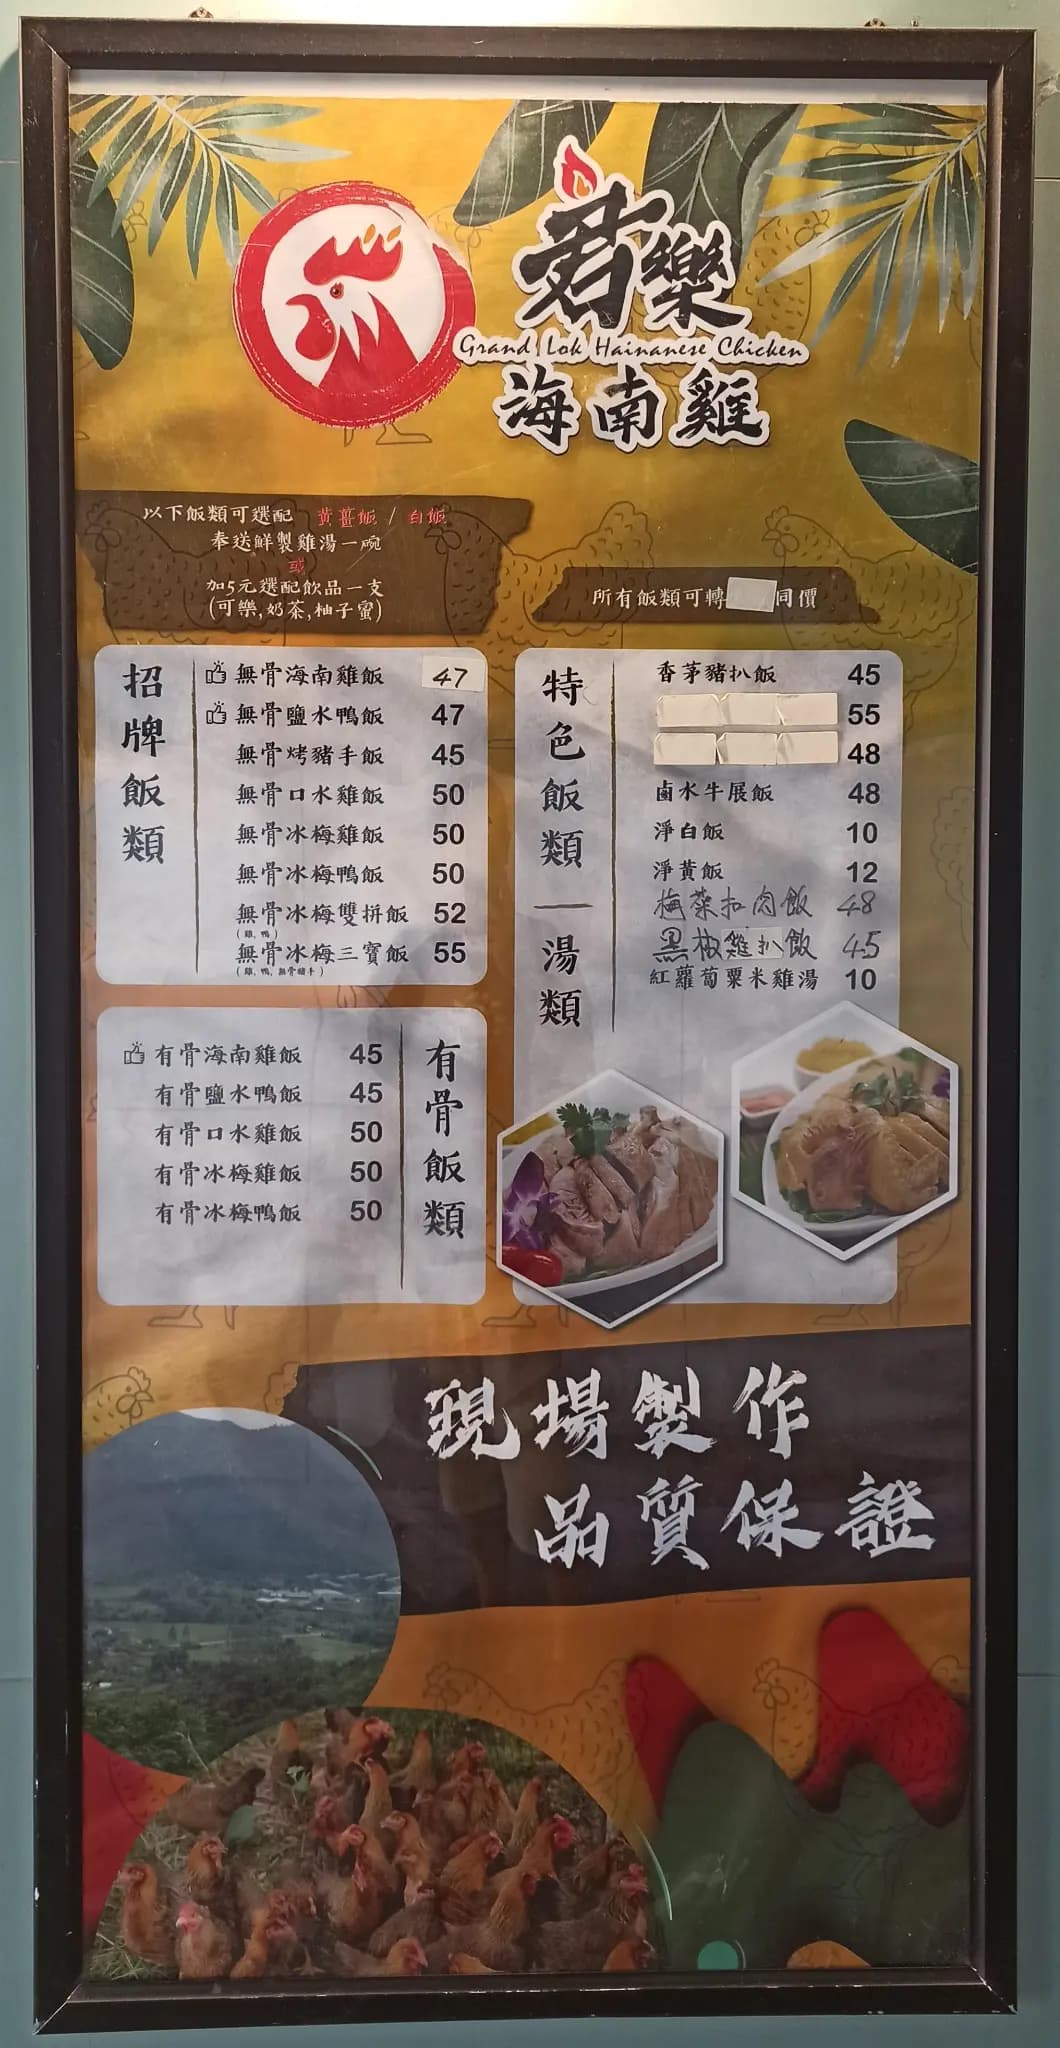 君樂
Grand Lok Hainanese Chicken
海南雞
以下飯類可選配 黃薑飯 / 白飯
奉送鮮製雞湯一碗
或
加5元選配飲品一支
(可樂,奶茶,柚子蜜)
所有飯類可轉 同價
招牌飯類
無骨海南雞飯 47
無骨鹽水鴨飯 47
無骨烤豬手飯 45
無骨口水雞飯 50
無骨冰梅雞飯 50
無骨冰梅鴨飯 50
無骨冰梅雙拼飯 52
(雞, 鴨)
無骨冰梅三寶飯 55
(雞, 鴨, 無骨豬手)
有骨飯類
有骨海南雞飯 45
有骨鹽水鴨飯 45
有骨口水雞飯 50
有骨冰梅雞飯 50
有骨冰梅鴨飯 50
特色飯類
湯類
香茅豬扒飯 45
55
48
鹵水牛展飯 48
淨白飯 10
淨黃飯 12
梅菜扣肉飯 48
黑椒雞扒飯 45
紅蘿蔔粟米雞湯 10
現場製作
品質保證